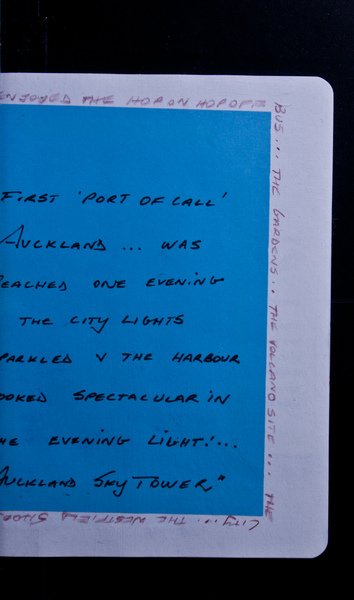 ENJOYED THE HOP ON HOPOFF
BUS... THE GARDENS.. THE VOLCANO SITE... THE
CITY... THE WESTFIELD SHOP
FIRST 'PORT OF CALL'
AUCKLAND ... WAS
REACHED ONE EVENING
THE CITY LIGHTS
PARKLED & THE HARBOUR
OOKED SPECTACULAR IN
HE EVENING LIGHT!...
AUCKLAND SKY TOWER"